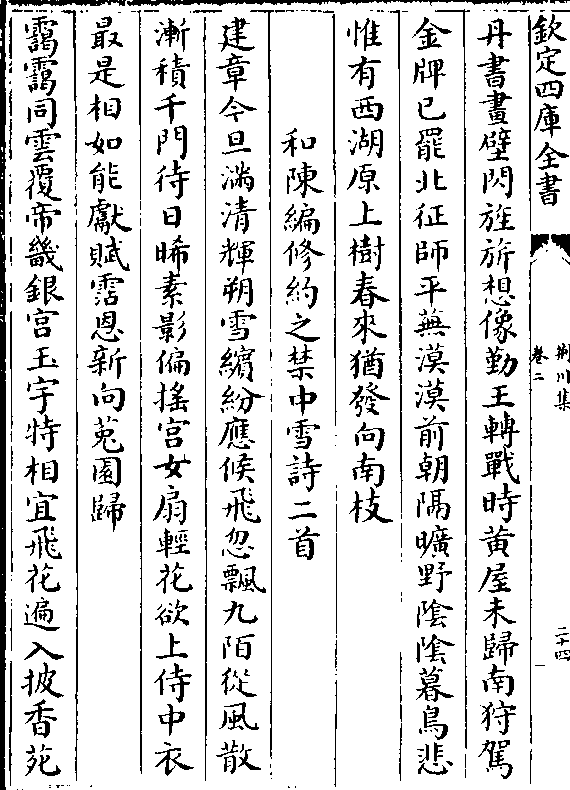 欽定四庫全書
荆川集
卷二
二十四
丹書畫壁閃旌旂想像勤王轉戰時黄屋未歸南狩駕
金牌已罷北征師平蕪漠漠前朝隔曠野陰陰暮鳥悲
惟有西湖原上樹春來猶發向南枝
和陳編修約之禁中雪詩二首
建章今旦滿清輝朔雪繽紛應候飛忽飄九陌從風散
漸積千門待日晞素影偏搖宫女扇輕花欲上侍中衣
最是相如能獻賦霑恩新向兎園歸
靄靄同雲覆帝畿銀宫玉宇特相宜飛花遍入披香苑